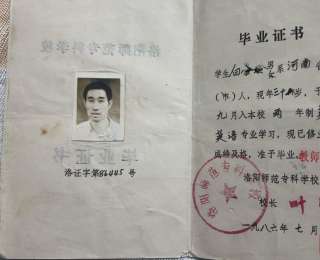 洛阳师范专科学校
毕业证书
洛证字第86445号
毕业证书
学生 男女系河南
(市)人，现年三十 岁，于
九月入本校 两 年制
英语专业学习，现已修
成绩及格，准予毕业。教师
洛阳师范专科学校
校长 叶
一九八六年七月